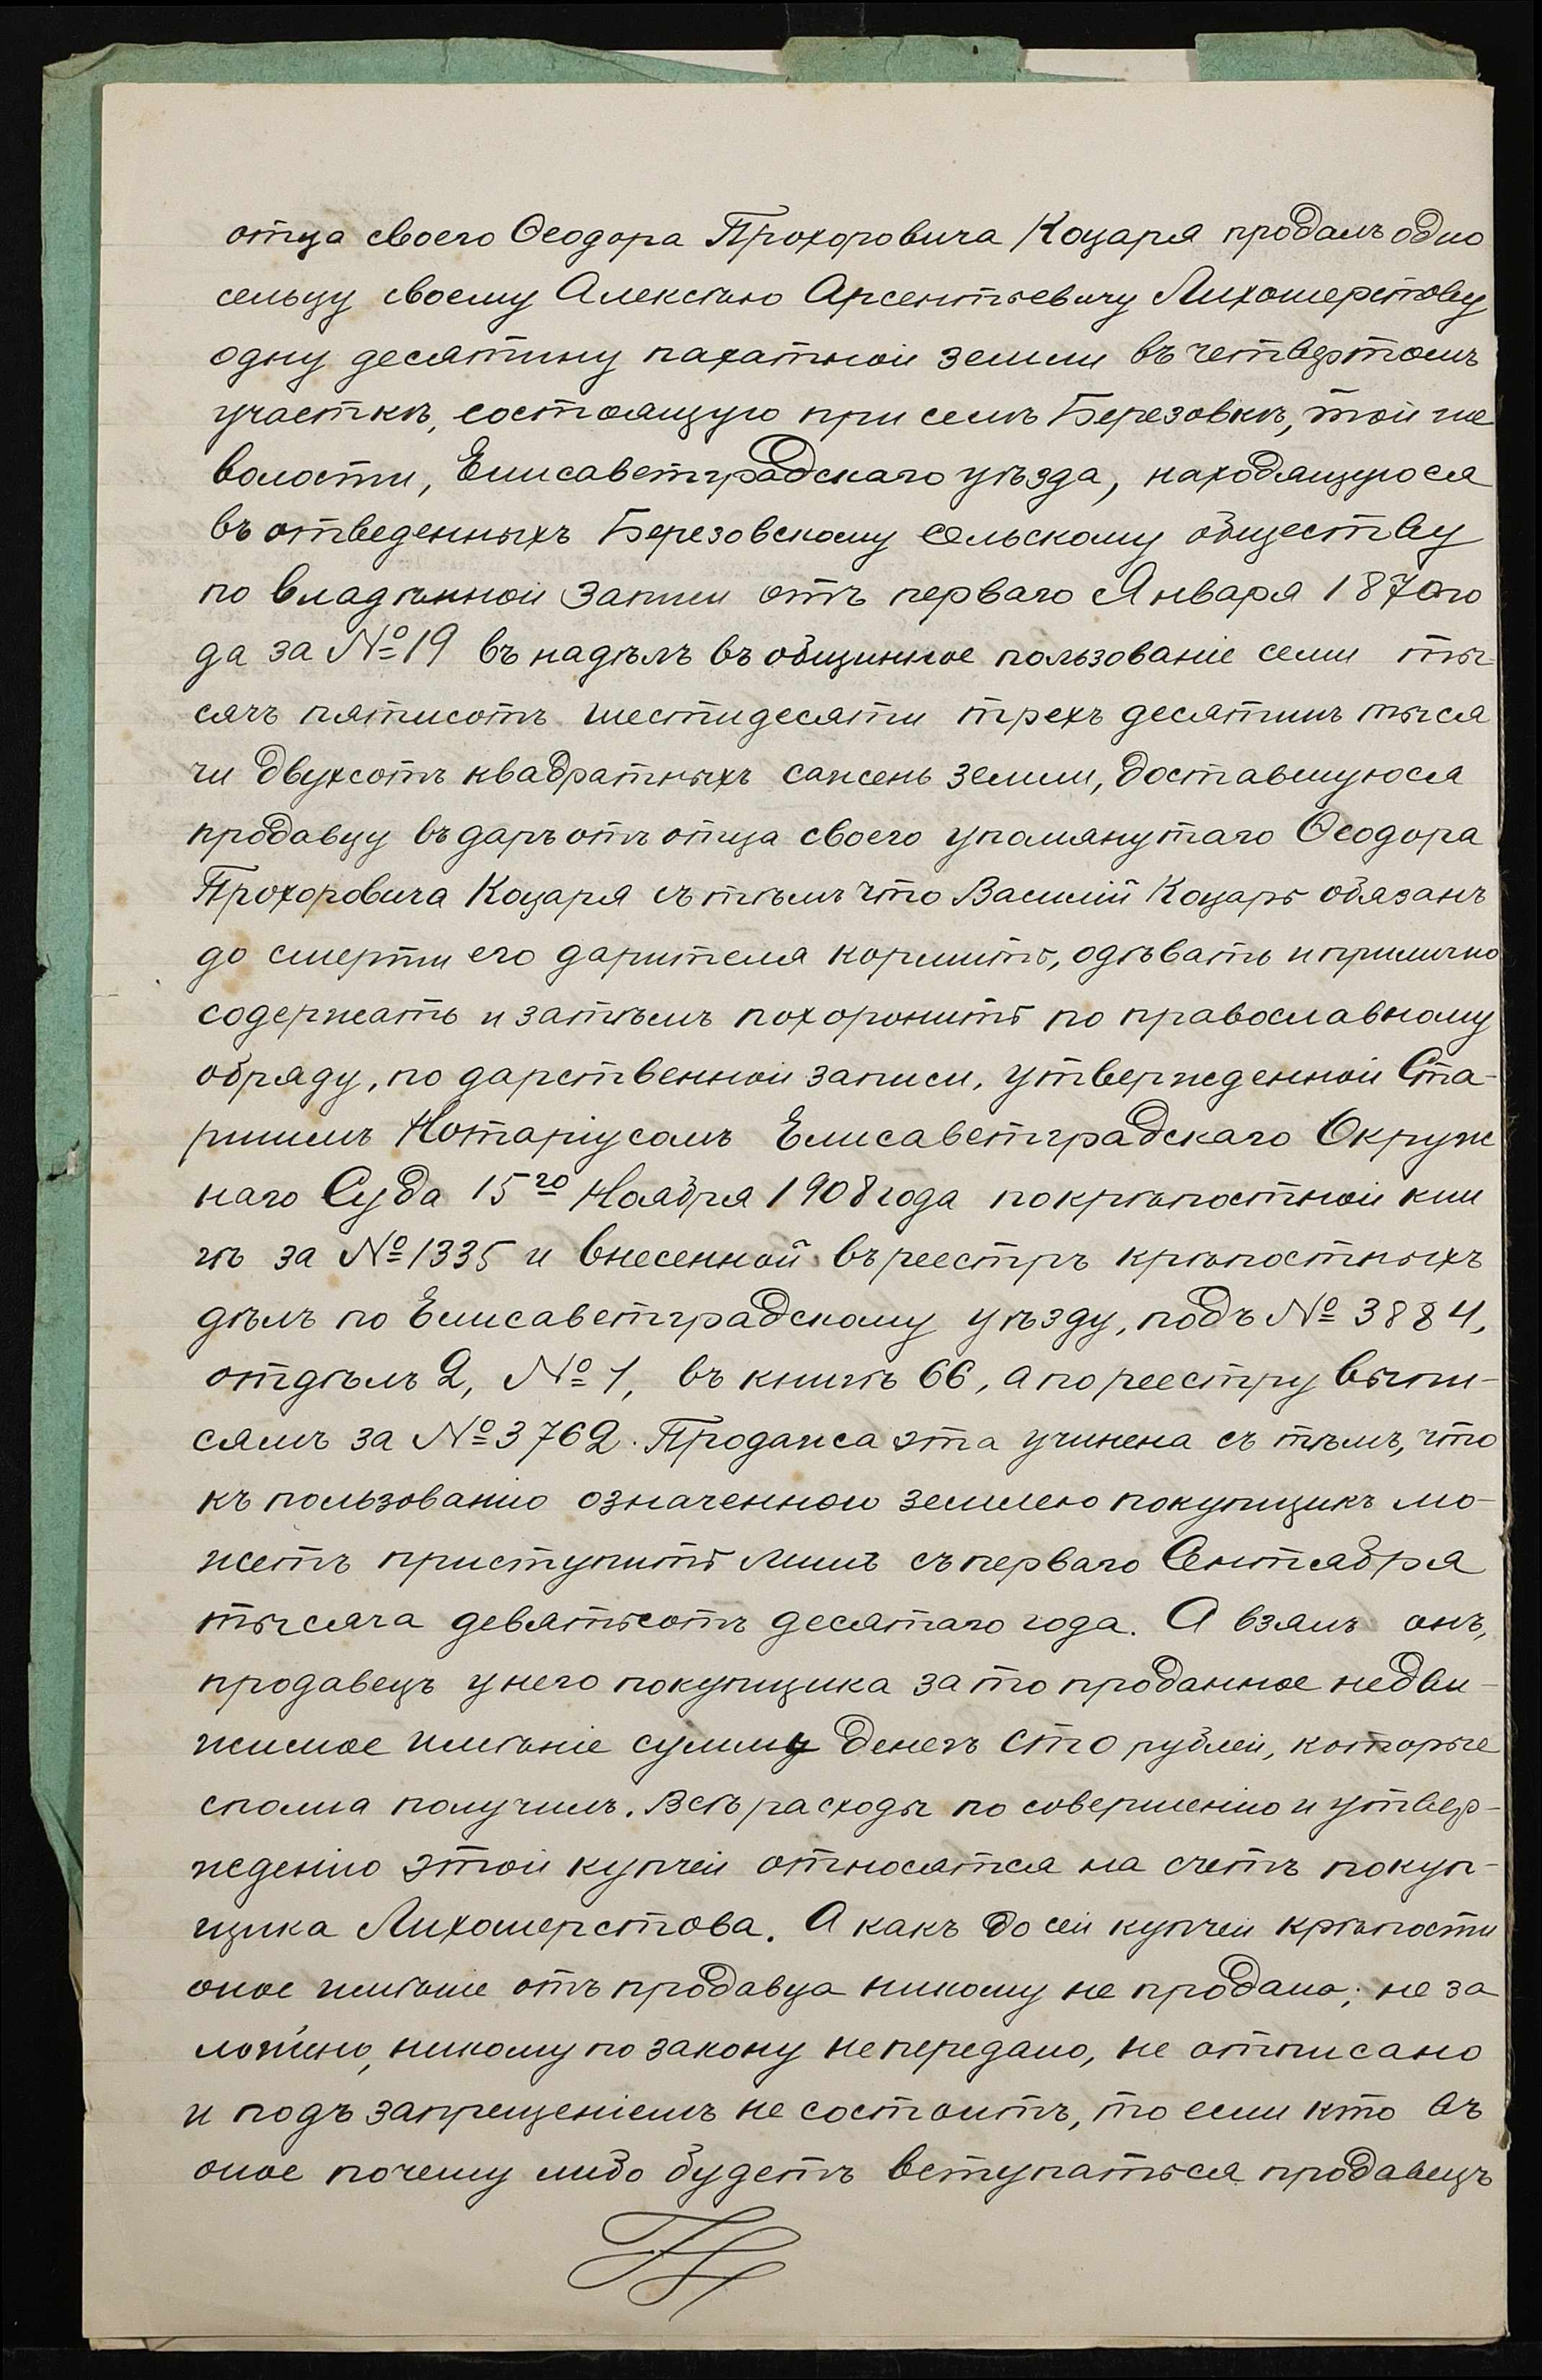 отца своего Ѳеодора Прохоровича Коцаря продалъ одно
сельцу своему Алексѣю Арсентьевичу Лихошерстову
одну десятину пахатной земли въ четвертомъ
участкѣ, состоящую при селѣ Березовкѣ, той же
волости, Елисаветградскаго уѣзда, находящуюся
въ отведенныхъ Березовскому сельскому обществу
по владѣнной записи отъ перваго Января 1870 го
да за № 19 въ надѣлъ въ общинное пользованіе семи ты-
сячъ пятисотъ шестидесяти трехъ десятинъ тыся
чи двухсотъ квадратныхъ сажень земли, доставшуюся
продавцу въ даръ отъ отца своего упомянутаго Ѳеодора
Прохоровича Коцаря съ тѣмъ что Василій Коцарь обязанъ
до смерти его дарителя кормить, одѣвать и прилично
содержать и затѣмъ похоронить по православному
обряду, по дарственной записи, утвержденной Ста-
ршимъ Нотаріусомъ Елисаветградскаго Окруж
наго Суда 15го Ноября 1908 года по крѣпостной кни
гѣ за № 1335 и внесенной въ реестръ крѣпостныхъ
дѣлъ по Елисаветградскому уѣзду, подъ № 3884,
отдѣлъ 2, № 1, въ книгѣ 66, а по реестру выпи-
сямъ за № 3762. Продажа эта учинена съ тѣмъ, что
къ пользованію означенною землею покупщикъ мо-
жетъ приступить лишь съ перваго Сентября
тысяча девятьсотъ десятаго года. А взялъ онъ,
продавецъ у него покупщика за то проданное недви-
жимое имѣніе сумму денегъ сто рублей, которые
сполна получилъ. Всѣ расходы по совершенію и утвер-
жденію этой купчей относятся на счетъ покуп-
щика Лихошерстова. А какъ до сей купчей крѣпости
оное имѣніе отъ продавца никому не продано; не за
ложено, никому по закону не передано, не отписано
и подъ запрещеніемъ не состоитъ, то если кто въ
оное почему либо будетъ вступаться продавецъ